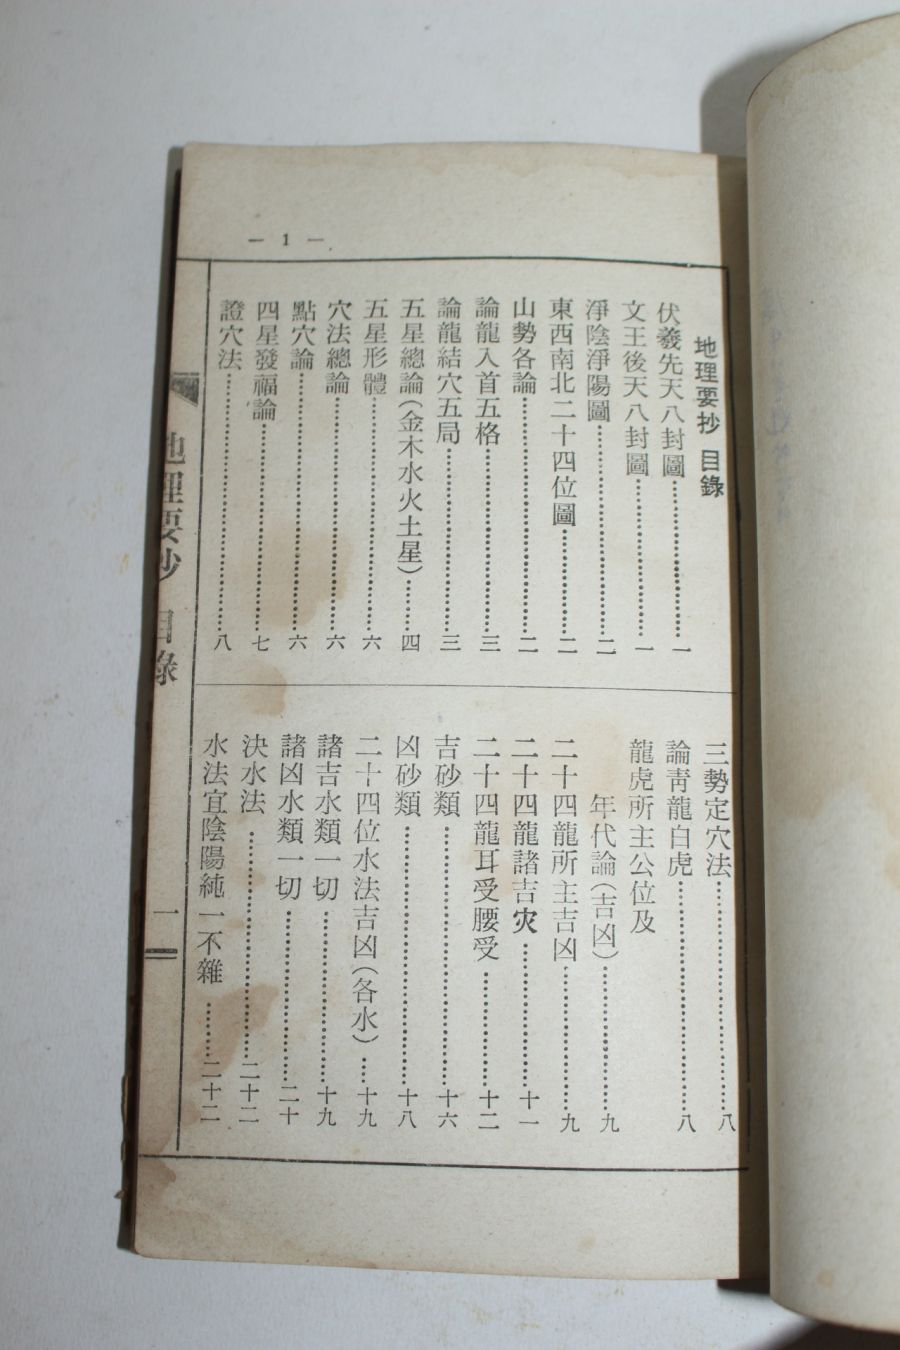 — 1 —
地理要抄 目錄
伏羲先天八封圖……一
文王後天八封圖……一
淨陰淨陽圖……二
東西南北二十四位圖……二
山勢各論……二
論龍入首五格……三
論龍結穴五局……三
五星總論(金木水火土星)……四
五星形體……六
穴法總論……六
點穴論……六
四星發福論……七
證穴法……八
三勢定穴法……八
論靑龍白虎……八
龍虎所主公位及
年代論(吉凶)……九
二十四龍所主吉凶……九
二十四龍諸吉灾……十一
二十四龍耳受腰受……十二
吉砂類……十六
凶砂類……十八
二十四位水法吉凶(各水)……十九
諸吉水類一切……十九
諸凶水類一切……二十
決水法……二十二
水法宜陰陽純一不雜……二十二
地理要抄 目錄 一